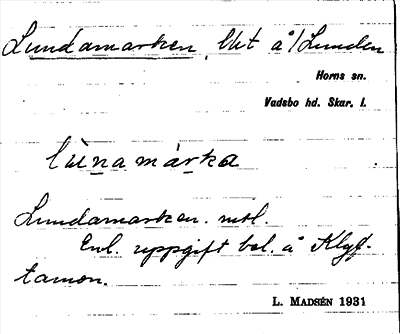 Lundamarken, bbt å/Lunden
Horns sn.
Vadsbo hd. Skar. l.
lùnamárka
Lundamarken. mtl.
Enl. uppgift bel. å Klyf-
tamon.
L. MADSÉN 1931